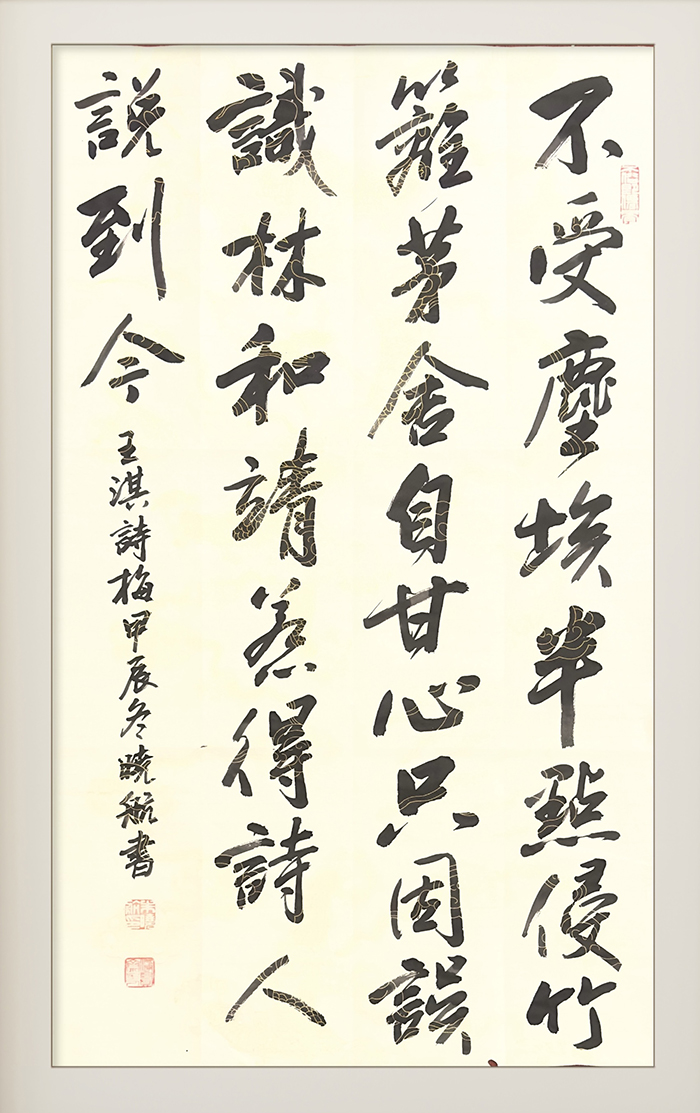 不受塵埃半點侵竹
籬茅舍自甘心只因誤
識林和靖惹得詩人
說到今
王淇詩梅甲辰冬曉航書